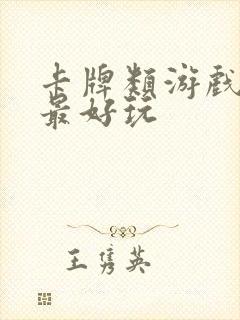 卡牌類游戲
最好玩
王隽英